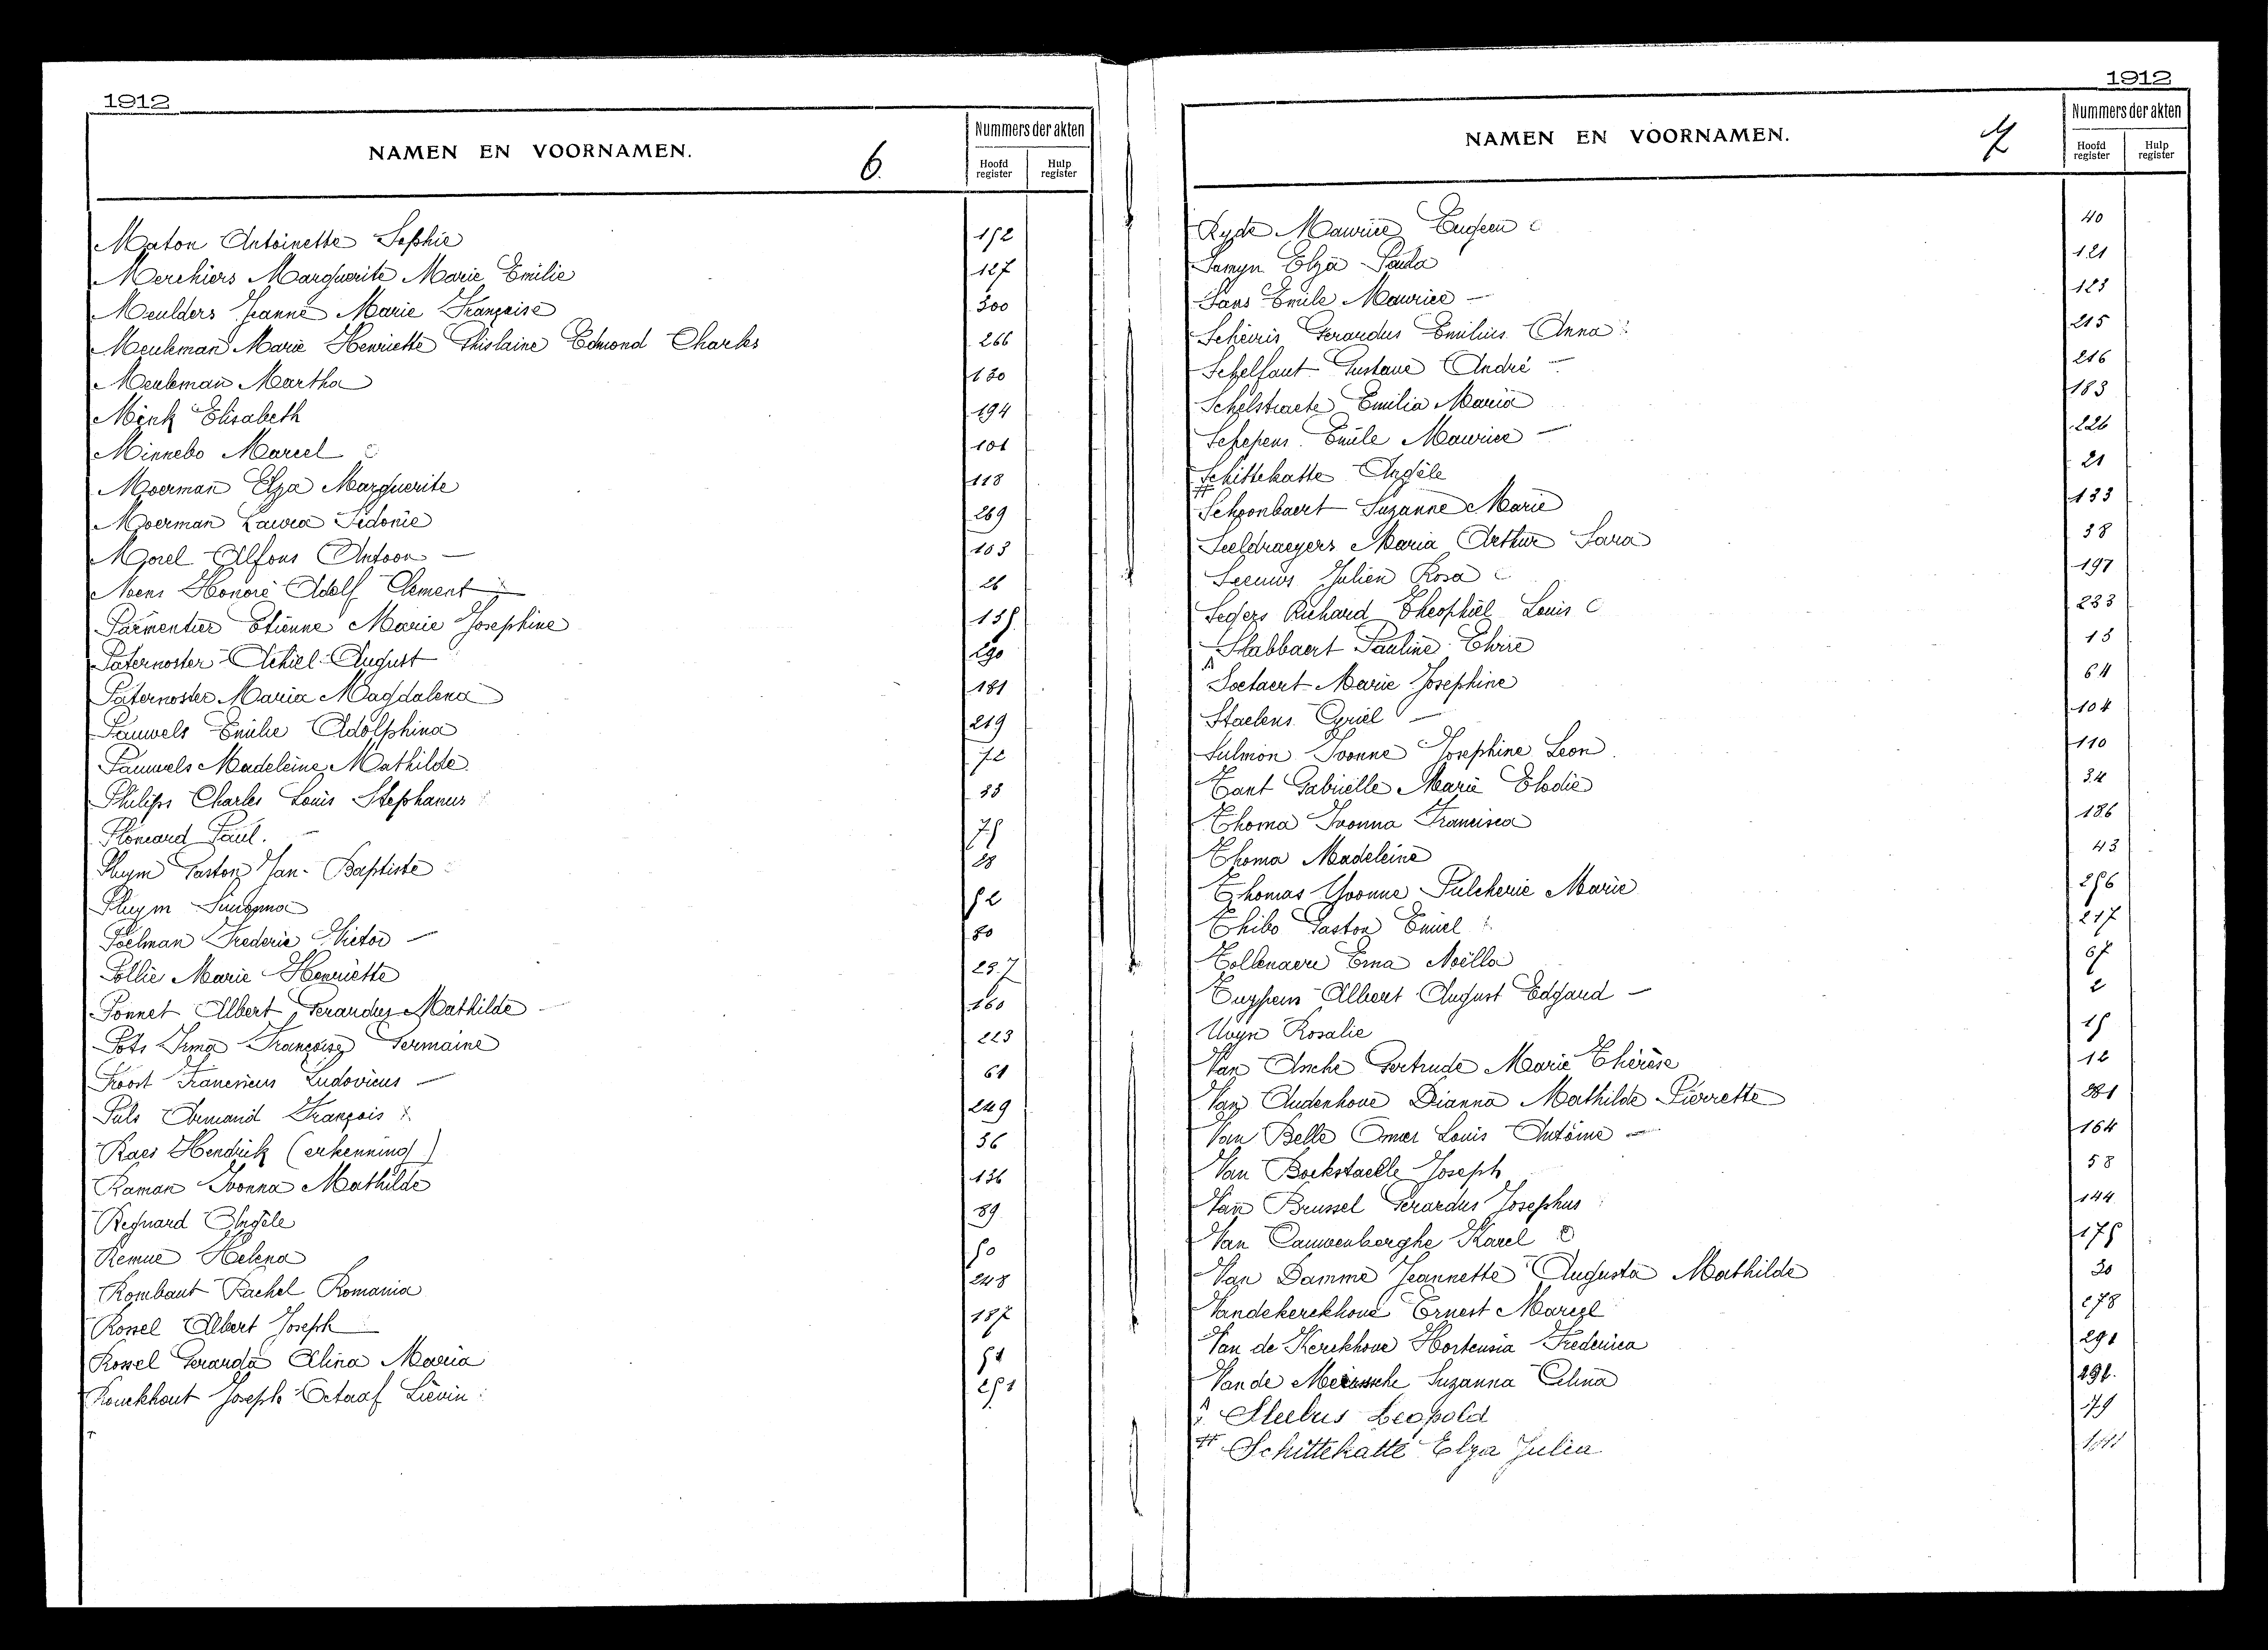 1912
NAMEN EN VOORNAMEN.
6.
Nummers der akten
Hoofd register
Hulp register
Maton Antoinette Sophie 152
Merchiers Marguerite Marie Emilie 127
Meulders Jeanne Marie Françoise 300
Meuleman Marie Henriette Ghislaine Edmond Charles 266
Meuleman Martha 130
Mink Elisabeth 194
Minnebo Marcel 101
Moerman Elza Marguerite 118
Moerman Laura Sidonie 269
Morel Alfons Antoon 103
Neens Honoré Adolf Clement 26
Parmentier Etienne Marie Josephine 135
Paternoster Achiel August 290
Paternoster Maria Magdalena 181
Pauwels Emilie Adolphina 219
Pauwels Madeleine Mathilde 72
Philips Charles Louis Stephanus 33
Plomard Paul. 75
Pluym Gaston Jan-Baptiste 28
Pluym Suzanna 52
Poelman Frederic Victor 80
Pollie Marie Henriette 237
Ponnet Albert Gerardus Mathilde 160
Pots Irma Françoise Germaine 223
Proost Franciscus Ludovicus 61
Puls Armand François 249
Raes Hendrik (erkenning) 36
Raman Ivonna Mathilde 136
Regnard Angèle 89
Remue Helena 50
Rombaut Rachel Romania 248
Rossel Albert Joseph 187
Rossel Gerarda Alina Maria 51
Rouckhout Joseph Octaaf Liévin 251
1912
NAMEN EN VOORNAMEN.
7
Nummers der akten
Hoofd register
Hulp register
Ryde Maurice Eugeen 40
Samyn Elza Paula 121
Sans Emile Maurice 123
Scheiris Gerardus Emilius Anna 215
Schelfaut Gustave André 216
Schelstraete Emilia Maria 183
Schepens Emile Maurice 226
Schittekatte Angèle 21
#
Schoonbaert Suzanne Marie 133
Seeldraeyers Maria Arthur Sara 38
Seeuws Julien Rosa 197
Segers Richard Theophiel Louis 233
Slabbaert Pauline Elvire 13
Soetaert Marie Josephine 64
Staelens Cyriel 104
Sulmon Ivonne Josephine Leon 110
Tant Gabrielle Marie Elodie 34
Thoma Ivonna Francisca 186
Thoma Madeleine 43
Thomas Yvonne Pulcherie Marie 256
Thibo Gaston Emiel 217
Tollenaere Erna Noëlla 67
Tuypens Albert August Edgard 2
Uvyn Rosalie 15
Van Assche Gertrude Marie Thérèse 12
Van Audenhove Dianna Mathilde Pierrette 281
Van Belle Omer Louis Antoine 164
Van Bockstaelle Joseph 58
Van Brussel Gerardus Josephus 144
Van Cauwenberghe Karel 175
Van Damme Jeannette Augusta Mathilde 30
Vandekerckhove Ernest Marcel 278
Van de Kerckhove Hortensia Frederica 291
Van de Meirssche Suzanna Celina 292.
Sleebus Leopold 179
# Schittekatte Elza Julia